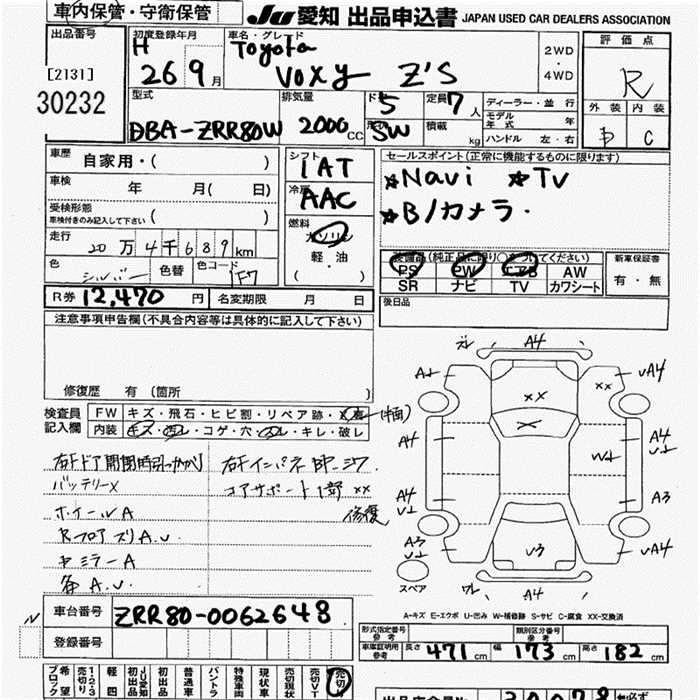 車内保管・守衛保管
JU愛知 出品申込書 JAPAN USED CAR DEALERS ASSOCIATION
出品番号
[2131]
30232
初度登録年月
H
26 9月
車名・グレード
Toyota
VOXY Z'S
2WD
・
4WD
評価点
R
外装 内装
D C
型式
DBA-ZRR80W
排気量
2000 CC
ドア 5
形状 SW
定員 7人
積載 kg
ディーラー・並行
モデル年式 年
ハンドル 左・右
車歴 自家用・( )
車検 年 月( 日)
受検形態
車検付きのみ記入して下さい ( )
走行 20万4千689km
色 シルバー 色替 色コード 1F7
シフト
IAT
冷房
AAC
燃料
ガソリン
軽・油
( )
セールスポイント(正常に機能するものに限ります)
★Navi ★TV
★B/カメラ.
装備品(純正品に限り○をつけてください)
PS PW AW
SR ナビ TV カワシート
新車保証書
有・無
R券 12,470円 名変期限 月 日
後日品
注意事項申告欄(不具合内容等は具体的に記入して下さい)
修復歴 有(箇所 )
検査員記入欄
FW キズ・飛石・ヒビ割・リペア跡・
内装 キズ・汚レ・コゲ・穴・スレ・キレ・破レ
右Fドア開閉時引っかかり
バッテリーX
ホイールA
RフロアズリA.U.
ミラーA
A.U.
右Fインパネ
コアサポート1部 XX
修復
A4
A1
A4
UA4
XX
XX
X
A4
U1
W1
A4
U1
A3
A3
U1
U3
UA4
A4
スペア
A-キズ E-エクボ U-凹み W-補修跡 S-サビ C-腐食 XX-交換済
車台番号 ZRR80-0062648
登録番号
形式指定番号 参考
類別区分番号 参考
車庫証明用 参考 長さ 471cm 幅 173cm 高さ 182cm
希望ブロック
1・2・3売切り
軽四
JU愛知初出品
初出品
普通車
バントラ
特殊車両
現状車
売切現状
売切VT
売切